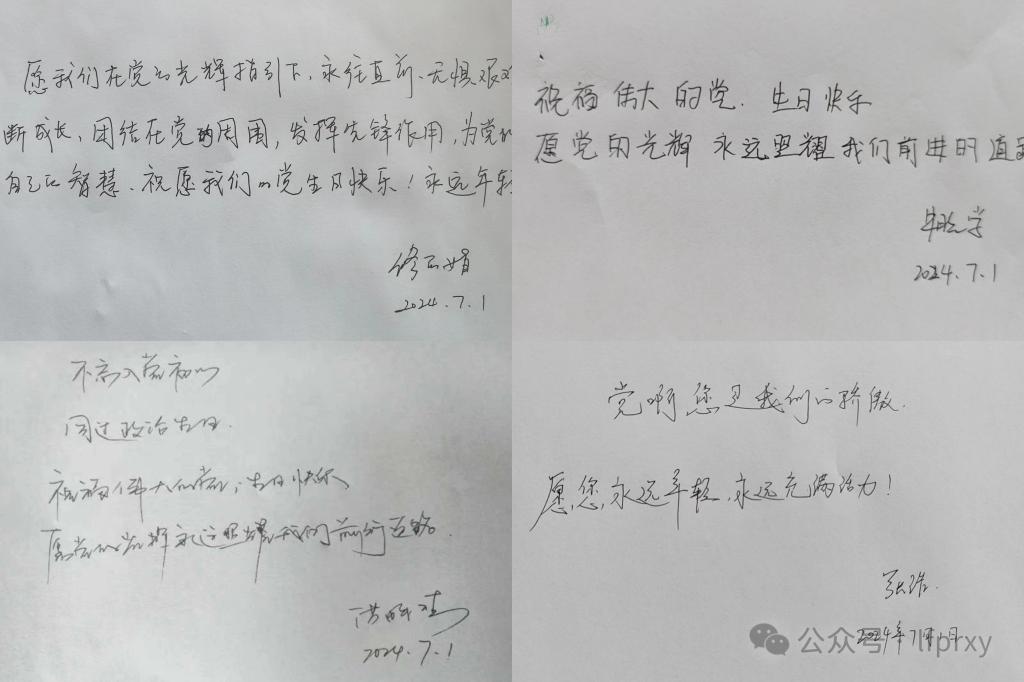 愿我们在党的光辉指引下、永往直前、无惧艰难
断成长、团结在党的周围，发挥先锋作用，为党的
自己的智慧、祝愿我们的党生日快乐！永远年轻
2024.7.1
祝福伟大的党．生日快乐
愿党的光辉 永远照耀我们前进的道路
2024.7.1
不忘入党初心
同过政治生日．
祝福伟大的党，生日快乐
愿党的光辉永远照耀我们前行道路．
2024.7.1
党啊您是我们的骄傲．
愿您，永远年轻，永远充满活力！
张
2024年7月1日
公众号 · liprxy